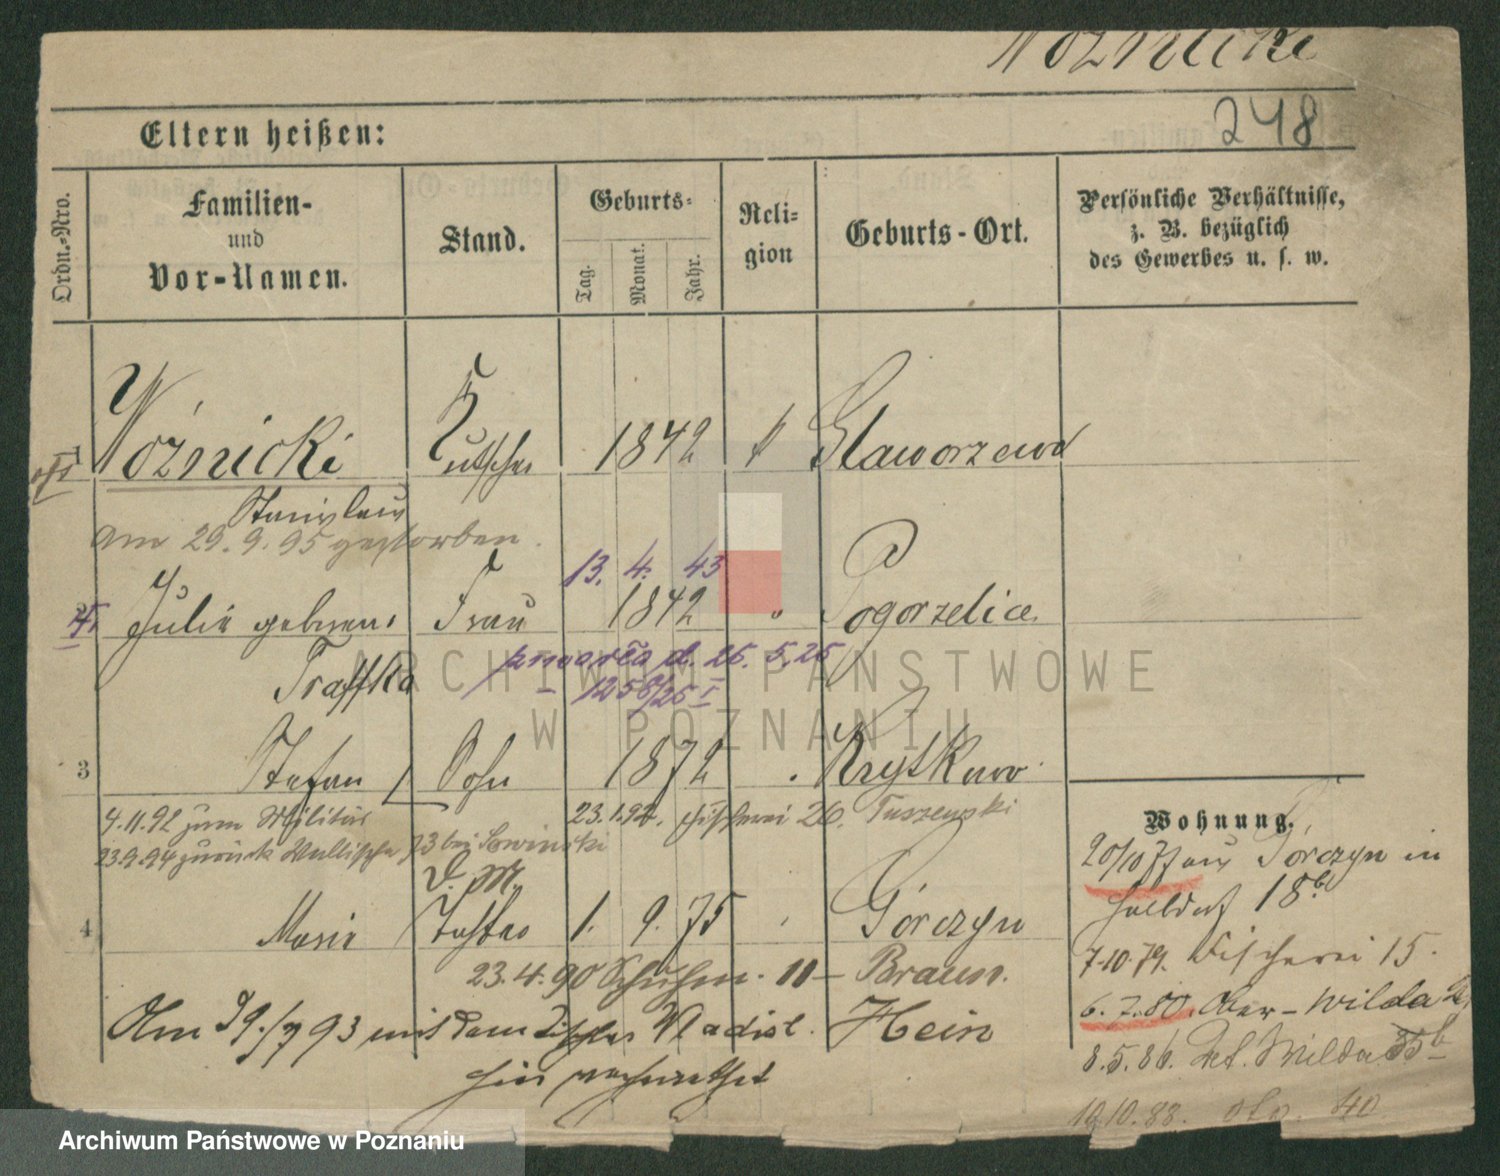 Woznicki
248
Eltern heißen:
Ordn.-Nro.
Familien-
und
Vor-Namen.
Stand.
Geburts-
Tag.
Monat.
Jahr.
Reli-
gion
Geburts-Ort.
Persönliche Verhältnisse,
z. B. bezüglich
des Gewerbes u. s. w.
Woźnicki Kutscher 1842 k Staworzewo
Stanislaus
am 29. 9. 95 gestorben.
13. 4. 43
Julie geborene Frau 1842 " Pogorzelice
Traffka
d. 26. 5. 25
3 Stefan Sohn 1872 Krzytkowo
4.11.92 zum Militär 23.1.92. Fischerei 26. Tuszewski
23.9.94 zurück Wallische 73 bei Lowinski
4 Marie Tochter 1. 9. 75 Górczyn
23.4.90 Schuhm. 11 – Braun.
Am 29./7 93 mit dem Tischler Wladisl. Hein
hier verheirathet
Wohnung.
20/10 77 aus Górczyn in
Halldorf 18b
7.10.79. Fischerei 15.
6.7.80. Ober-Wilda
8.5.86. Wilda
10.10.88. dto. 40
ARCHIWUM PAŃSTWOWE
W POZNANIU
Archiwum Państwowe w Poznaniu